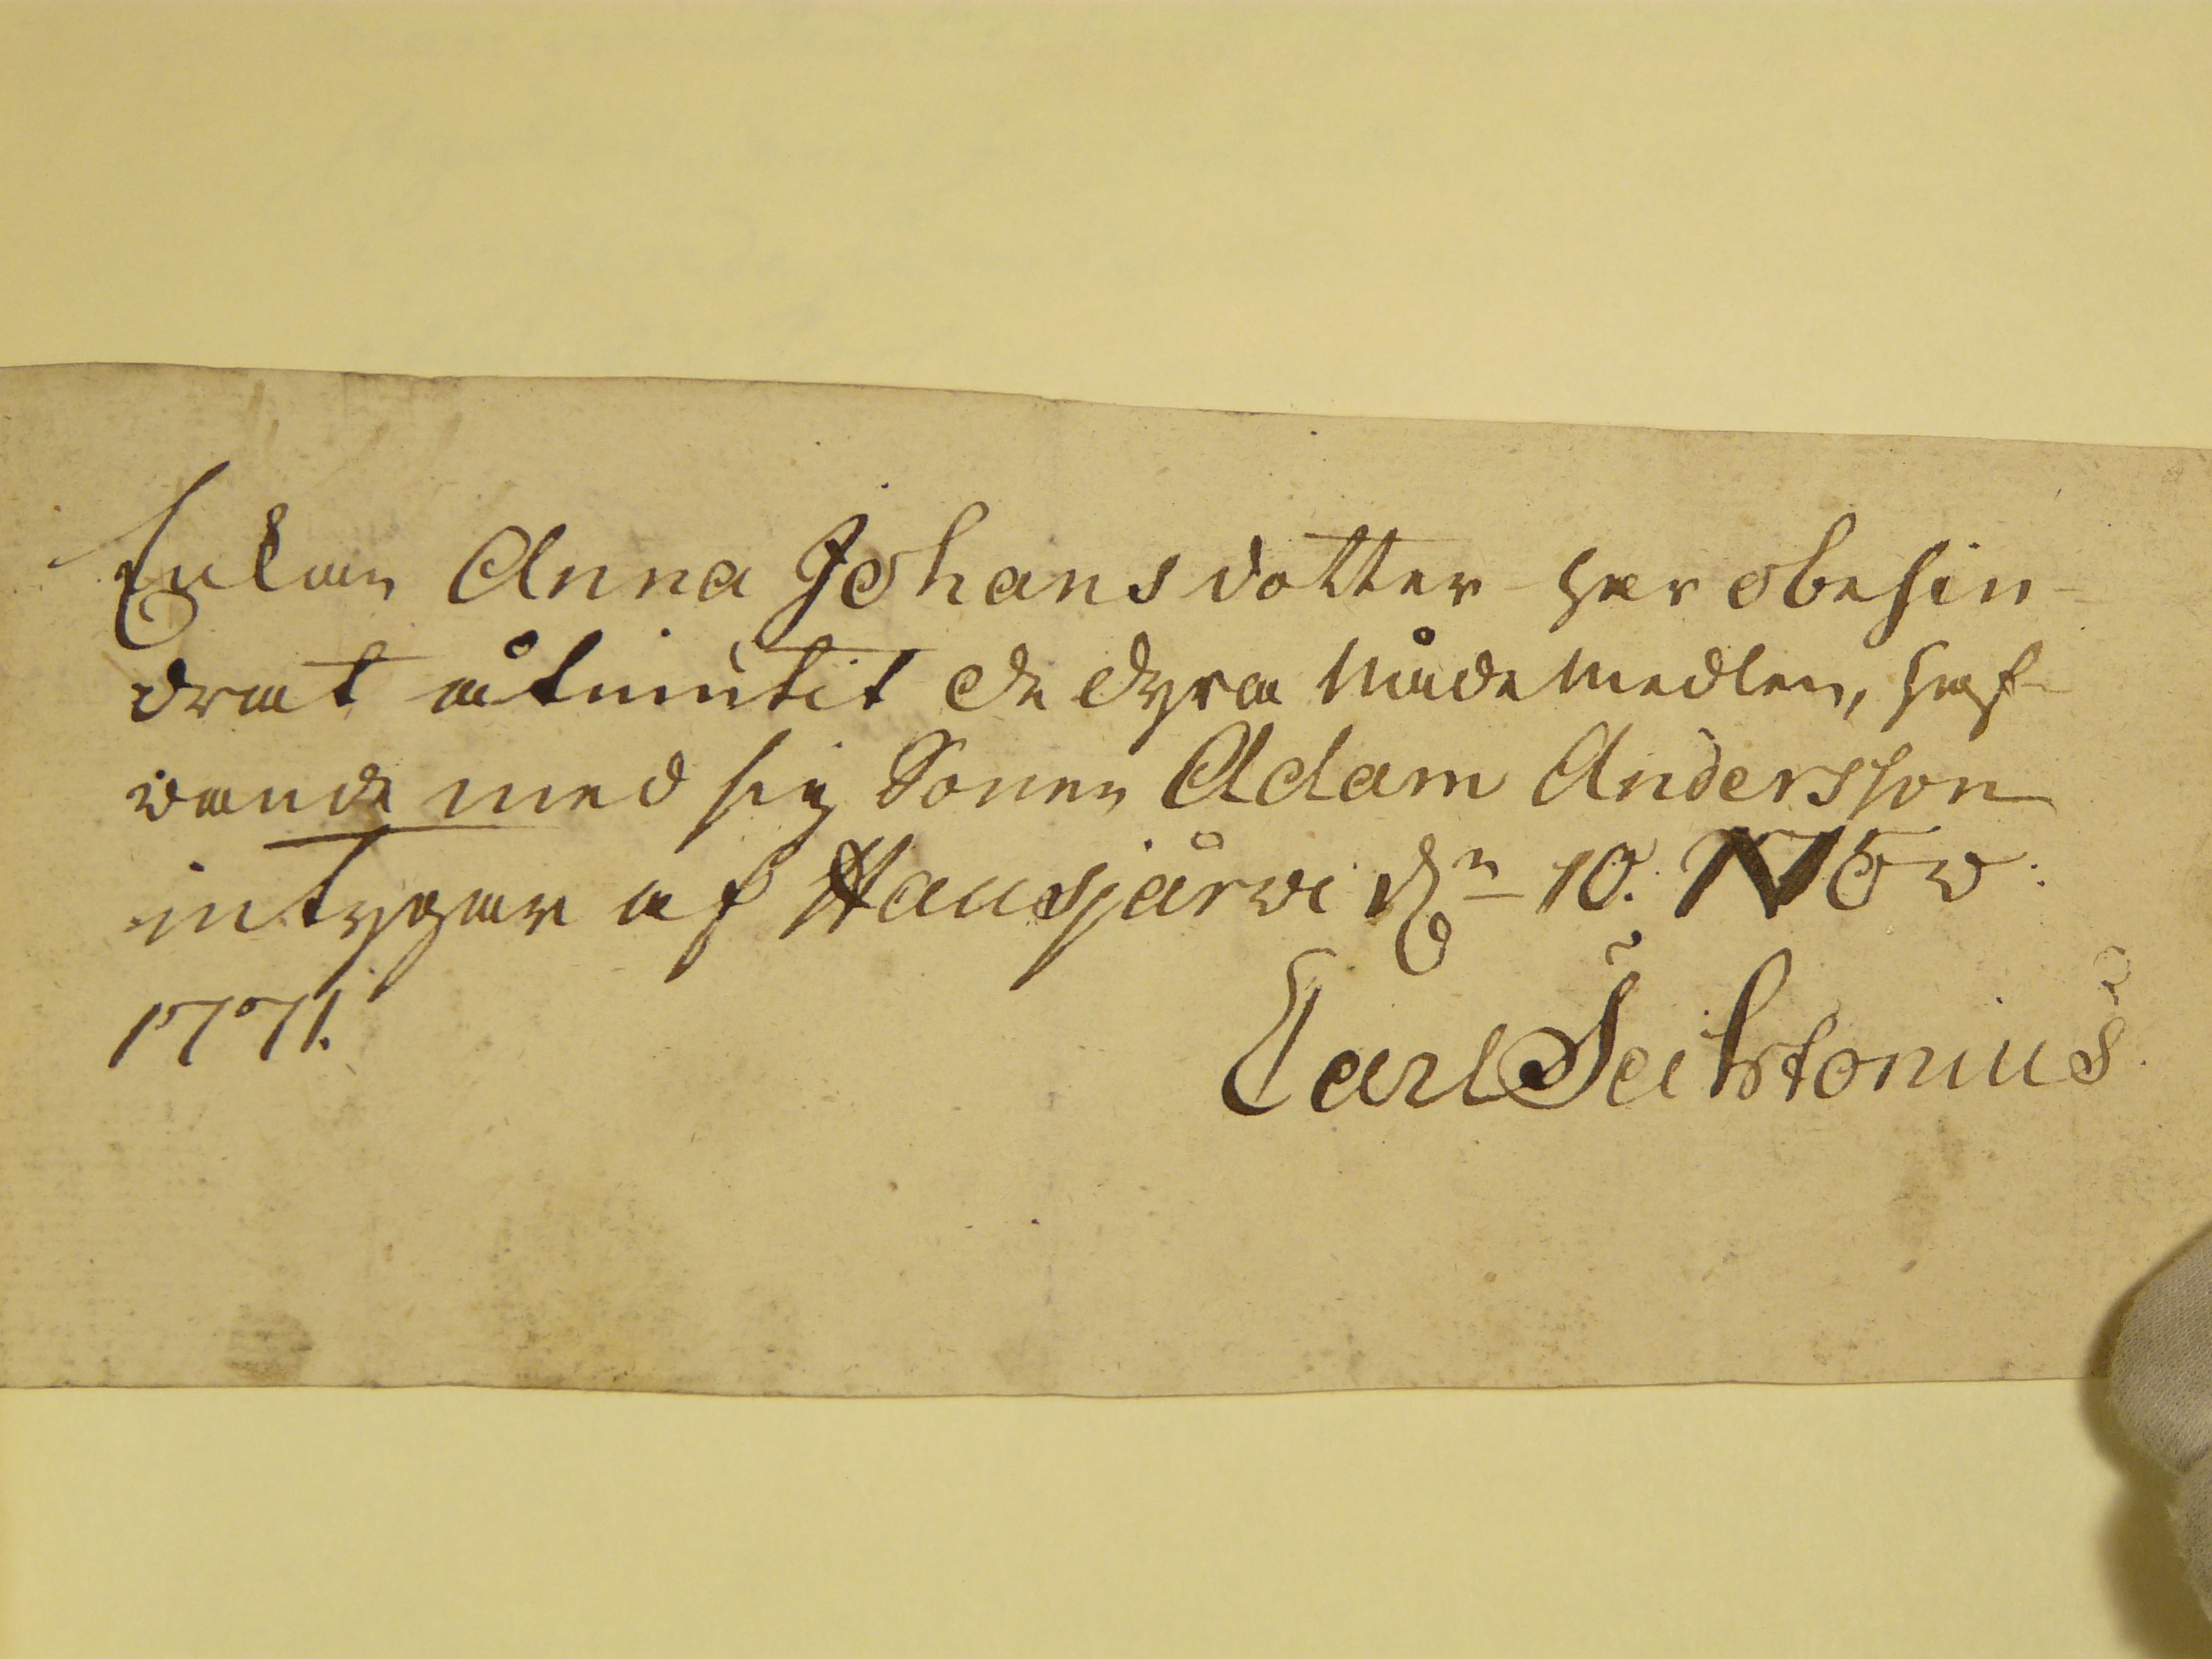 Enkan Anna Johansdotter har obehin-
drat åtniutit de dyra Nådemedlen, haf-
vande med sig Sonen Adam Andersson
intygar af Hausjärvi dn 10. Nov:
1771.
Carl